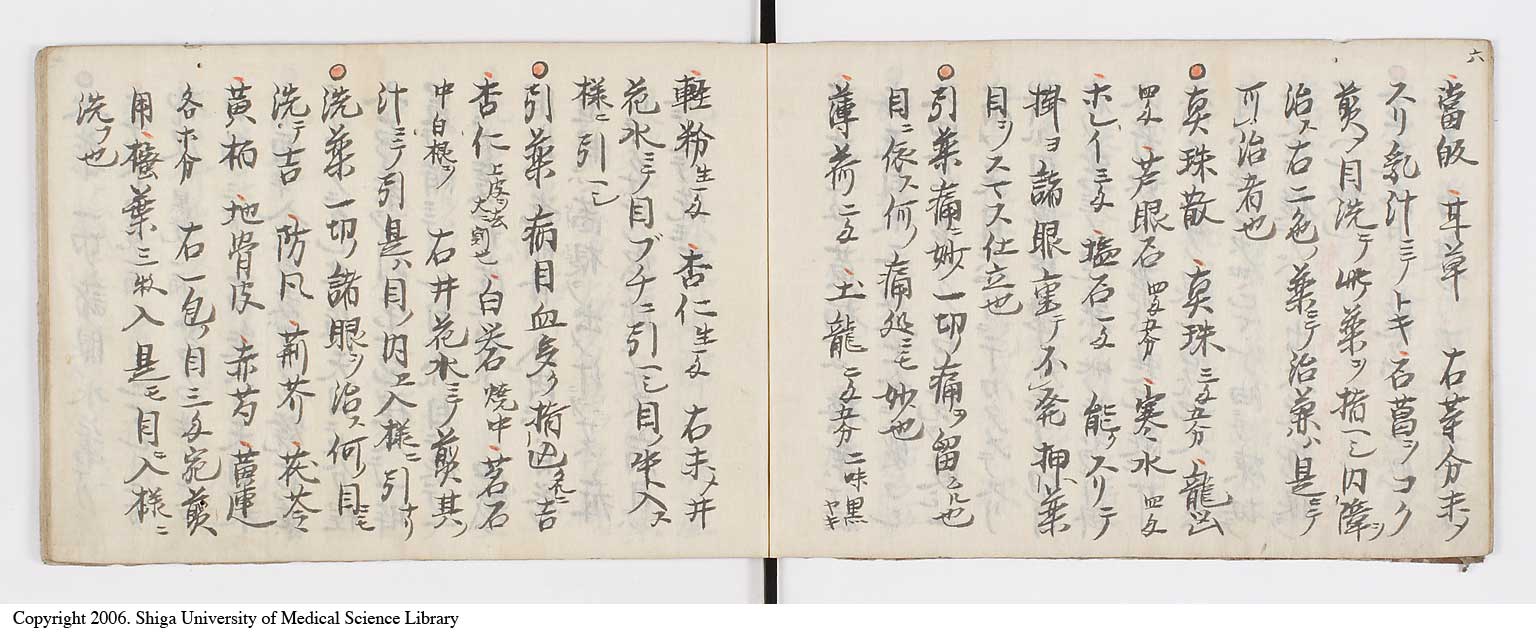 六
當皈 甘草 右等分末ノ
スリ乳汁ミテトキ石菖ヲコク
煎ノ目洗テ此薬ヲ指ヘシ内障ヲ
治ス右二色ノ薬ミテ治薬ハ是ミテ
可治者也
真珠散 真珠 三匁五分 龍
四匁 芦眼石 四匁五分 寒水 四匁
ホレイ三匁 塩石一匁 能クスリテ
掛ヨ諸眼重テ不発 押薬
目ヲスマス仕立也
引薬痛ニ妙一切痛ヲ留ル也
目ニ依ス何ノ痛処ニモ妙也
薄荷二匁 土龍 二匁五分 二味黒ヤキ
軽粉 生一匁 杏仁 生一匁 右末ノ井
花水ミテ目ブチニ引ヘシ目ノ中入ス
様ニ引ヘシ
引薬 病目血多ク指ニ吉
杏仁 上皮ヲ去 大ニ 也 白岩 焼中 茗石
中白根ヲ 右井花水ミテ煎其
汁ミテ引是ハ目ノ内エ入様ニ引ナリ
洗薬 一切諸眼ヲ治ス何ノ目ニモ
洗テ吉 防風 荊芥 茯苓
黄柏 地骨皮 赤芍 黄連
各ホ分 右一包ノ目三匁宛煎
用 葉三枚入是モ目ニ入様ニ
洗フ也
Copyright 2006. Shiga University of Medical Science Library